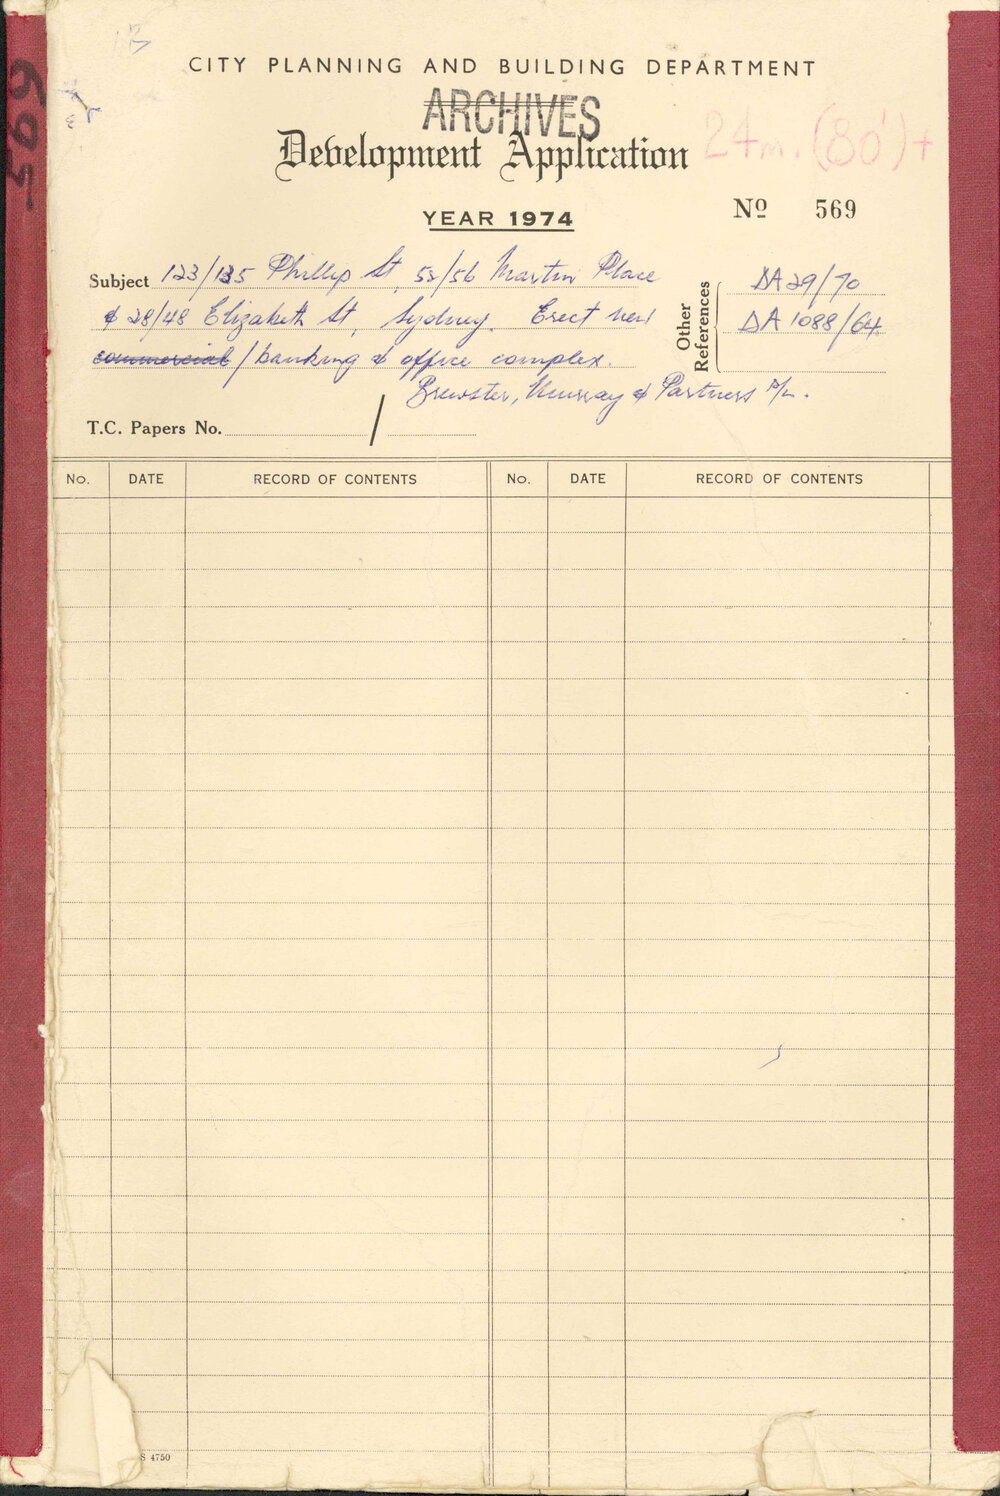 569
CITY PLANNING AND BUILDING DEPARTMENT
ARCHIVES
Development Application
24m. (80')+
YEAR 1974
No 569
Subject 123/135 Phillip St, 52/56 Martin Place
& 28/48 Elizabeth St, Sydney. Erect new
commercial / banking & office complex.
Brewster, Murray & Partners P/L.
Other References
DA 29/70
DA 1088/64
T.C. Papers No. /
No. DATE RECORD OF CONTENTS No. DATE RECORD OF CONTENTS
S 4750